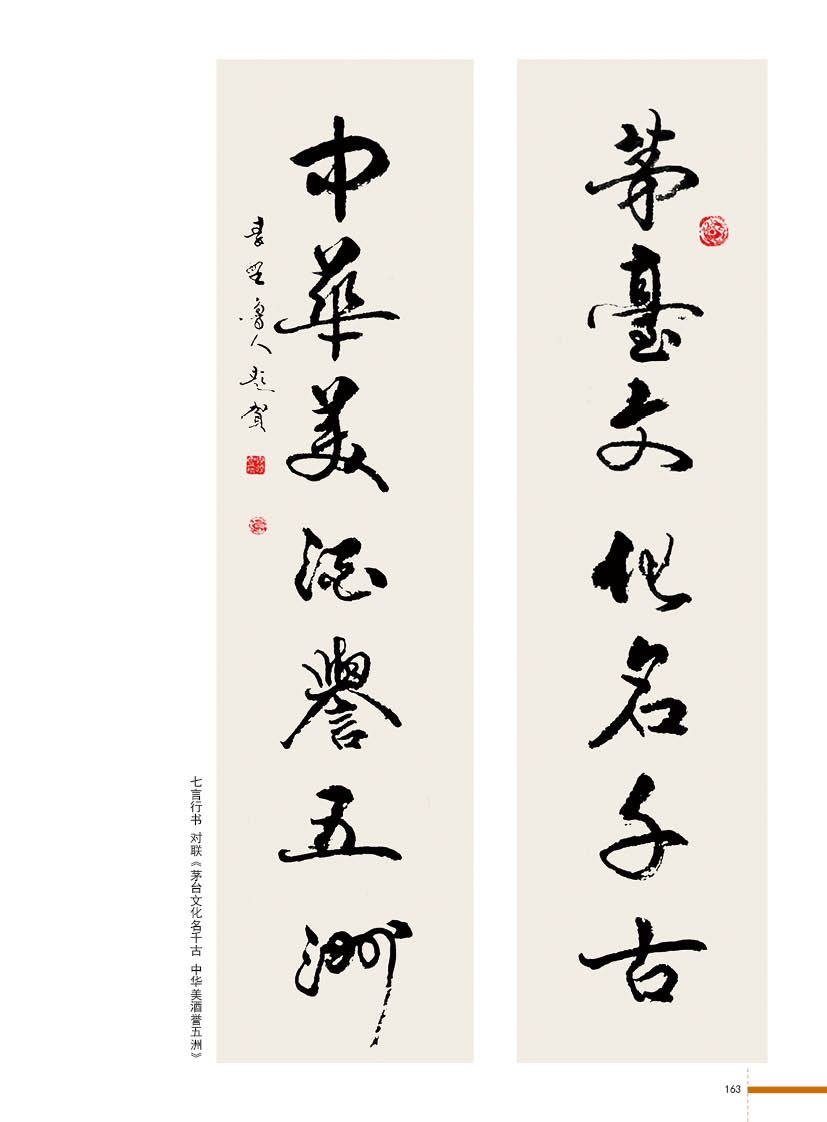 茅臺文化名千古
中華美酒譽五洲
魯人題賀
七言行书 对联《茅台文化名千古 中华美酒誉五洲》
163